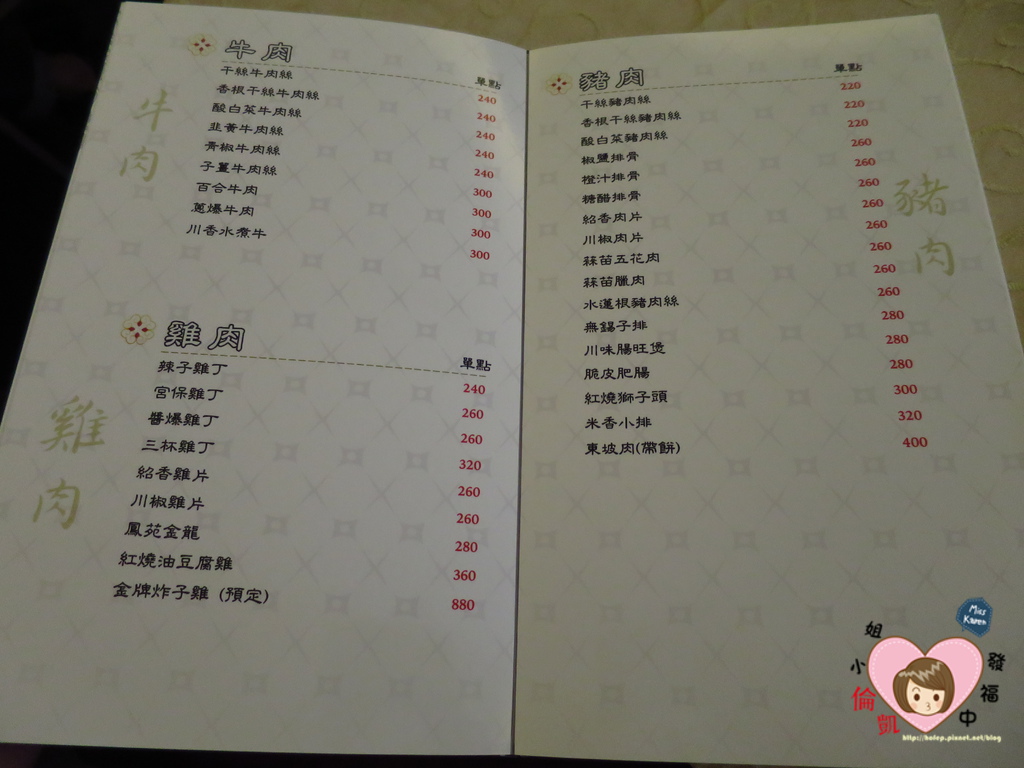 牛肉
單點
干絲牛肉絲 240
香根干絲牛肉絲 240
酸白菜牛肉絲 240
韭黃牛肉絲 240
青椒牛肉絲 240
子薑牛肉絲 300
百合牛肉 300
蔥爆牛肉 300
川香水煮牛 300
牛肉
雞肉
單點
辣子雞丁 240
宮保雞丁 260
醬爆雞丁 260
三杯雞丁 320
紹香雞片 260
川椒雞片 260
鳳苑金龍 280
紅燒油豆腐雞 360
金牌炸子雞 (預定) 880
雞肉
豬肉
單點
干絲豬肉絲 220
香根干絲豬肉絲 220
酸白菜豬肉絲 220
椒鹽排骨 260
橙汁排骨 260
糖醋排骨 260
紹香肉片 260
川椒肉片 260
蒜苗五花肉 260
蒜苗臘肉 260
水蓮根豬肉絲 260
無錫子排 280
川味腸旺煲 280
脆皮肥腸 280
紅燒獅子頭 300
米香小排 320
東坡肉(帶餅) 400
豬肉
Miss Karen
凱倫小姐
發福中
http://holep.pixnet.net/blog